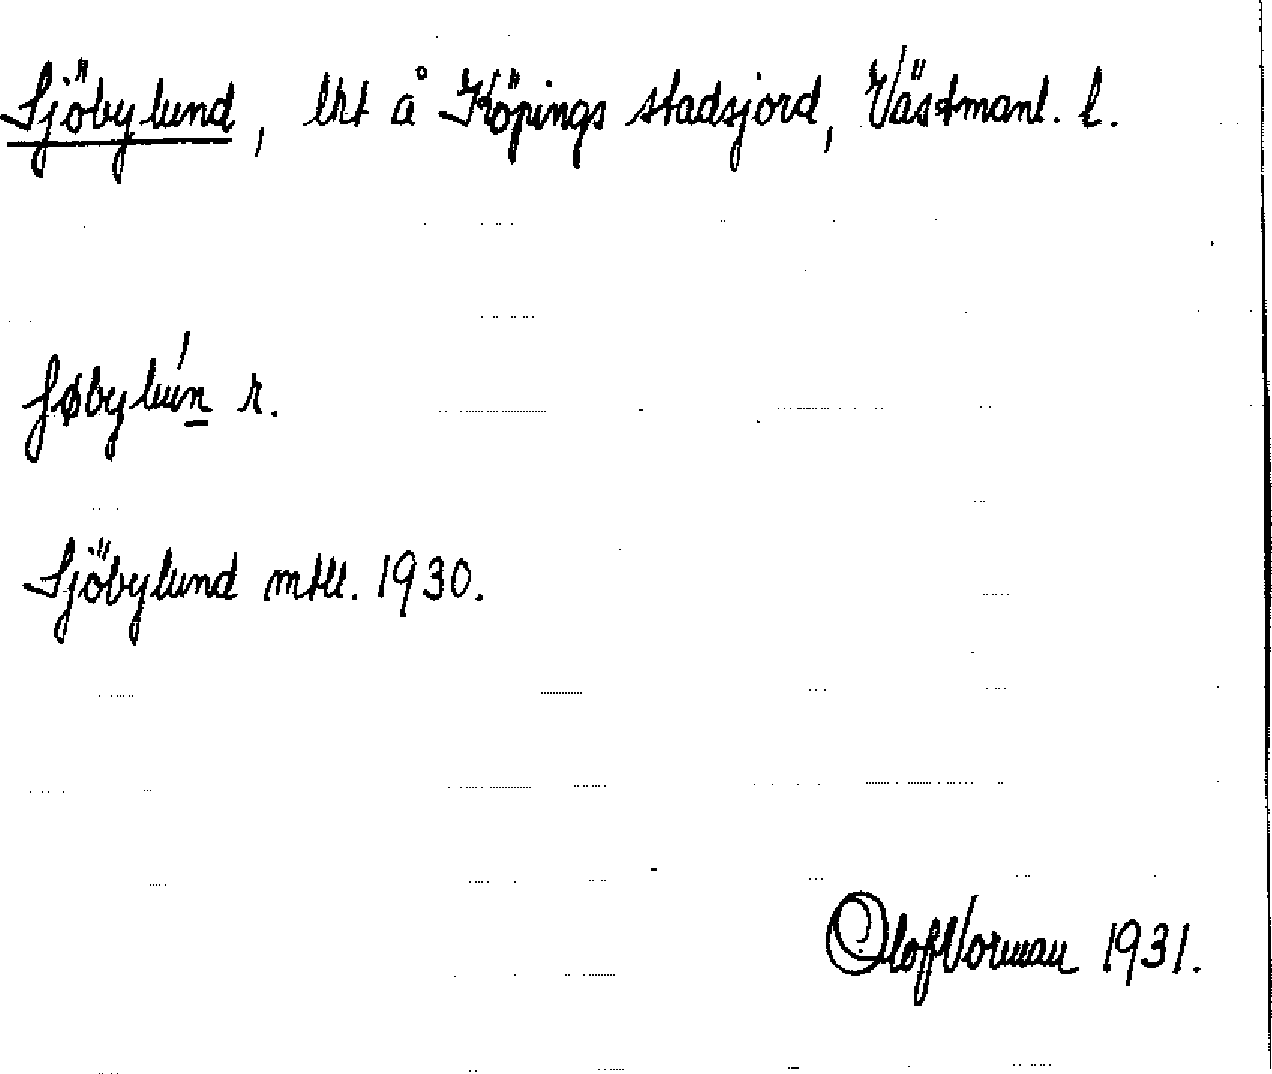 Sjöbylund, lht å Köpings stadsjord, Västmanl. l.
ſøbylún r.
Sjöbylund mtll. 1930.
Olof Vorman 1931.